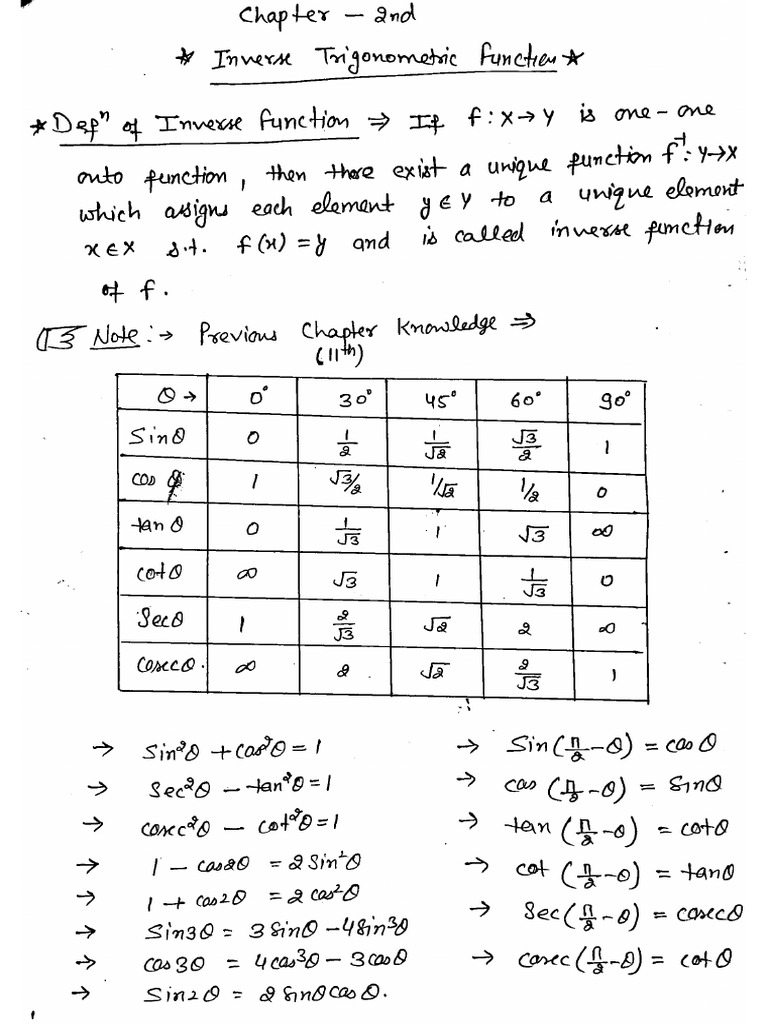 Chapter – 2nd
* Inverse Trigonometric function *
* Defⁿ of Inverse function ⇒ If f : X → Y is one-one
onto function, then there exist a unique function f⁻¹: Y→X
which assigns each element y ∈ Y to a unique element
x ∈ X s.t. f(x) = y and is called inverse function
of f.
Note :→ Previous Chapter Knowledge ⇒
(11th)
θ → 0° 30° 45° 60° 90°
Sinθ 0 1/2 1/√2 √3/2 1
cos θ 1 √3/2 1/√2 1/2 0
tanθ 0 1/√3 1 √3 ∞
cotθ ∞ √3 1 1/√3 0
Secθ 1 2/√3 √2 2 ∞
Cosecθ. ∞ 2 √2 2/√3 1
→ Sin²θ + cos²θ = 1
→ Sec²θ – tan²θ = 1
→ cosec²θ – cot²θ = 1
→ 1 – cos2θ = 2 Sin²θ
→ 1 + cos2θ = 2 cos²θ
→ Sin3θ = 3 Sinθ – 4Sin³θ
→ cos3θ = 4cos³θ – 3cosθ
→ Sin2θ = 2 Sinθ cosθ.
→ Sin(π/2 – θ) = cosθ
→ cos(π/2 – θ) = Sinθ
→ tan(π/2 – θ) = cotθ
→ cot(π/2 – θ) = tanθ
→ Sec(π/2 – θ) = cosecθ
→ cosec(π/2 – θ) = cotθ